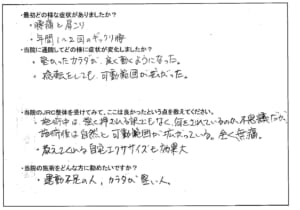 ・最初どの様な症状がありましたか？
・腰痛と肩こり
・年間1〜2回のギックリ腰
・当院に通院してどの様に症状が変化しましたか？
・堅かったカラダが、良く動くようになった。
・施術をしても、可動範囲が広がった。
・当院のJRC整体を受けてみて、ここは良かったという点を教えてください。
・施術中は強く押される訳でもなく、何をされているのか不思議だが、
施術後は自然と可動範囲が広がっている。全く無痛。
・教えてくれる自宅エクササイズも効果大
・当院の施術をどんな方に勧めたいですか？
・運動不足の人、カラダが堅い人。